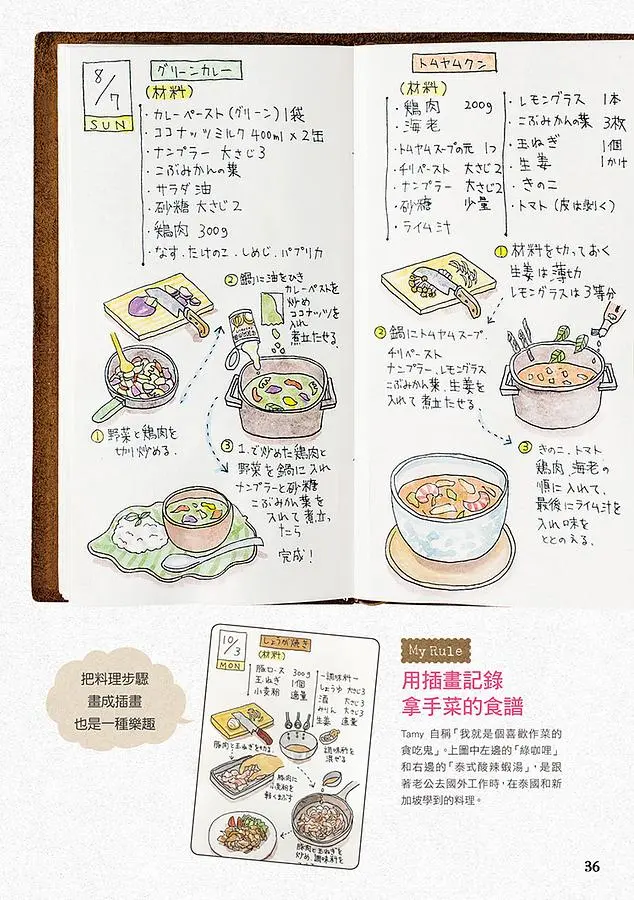 8/7
SUN
グリーンカレー
(材料)
・カレーペースト(グリーン)1袋
・ココナッツミルク 400ml×2缶
・ナンプラー 大さじ3
・こぶみかんの葉
・サラダ油
・砂糖 大さじ2
・鶏肉 300g
・なす.たけのこ.しめじ.パプリカ
②鍋に油をひき
カレーペーストを
炒め
ココナッツを
入れ
煮立たせる.
①野菜と鶏肉を
切り炒める.
③1.で炒めた鶏肉と
野菜を鍋に入れ
ナンプラーと砂糖
こぶみかん葉を
入れて煮立っ
たら
完成!
トムヤムクン
(材料)
・鶏肉 200g
・海老
・トムヤムスープの元 1つ
・チリペースト 大さじ2
・ナンプラー 大さじ2
・砂糖 少量
・ライム汁
・レモングラス 1本
・こぶみかんの葉 3枚
・玉ねぎ 1個
・生姜 1かけ
・きのこ
・トマト(皮は剥く)
①材料を切っておく
生姜は薄切
レモングラスは3等分
②鍋にトムヤムスープ.
チリペースト
ナンプラー.レモングラス
こぶみかん葉.生姜を
入れて煮立たせる
③きのこ.トマト
鶏肉.海老の
順に入れて.
最後にライム汁を
入れ味を
ととのえる.
把料理步驟
畫成插畫
也是一種樂趣
10/3
MON
しょうが焼き
(材料)
豚ロース 300g
玉ねぎ 1個
小麦粉 適量
-調味料-
しょうゆ 大さじ3
酒 大さじ3
みりん 大さじ3
生姜 適量
豚肉と玉ねぎを切る.
調味料を
混ぜる
豚肉に
小麦粉を
軽くまぶす
豚肉と玉ねぎを
炒め.調味料を
My Rule
用插畫記錄
拿手菜的食譜
Tamy 自稱「我就是個喜歡作菜的
貪吃鬼」。上圖中左邊的「綠咖哩」
和右邊的「泰式酸辣蝦湯」,是跟
著老公去國外工作時,在泰國和新
加坡學到的料理。
36